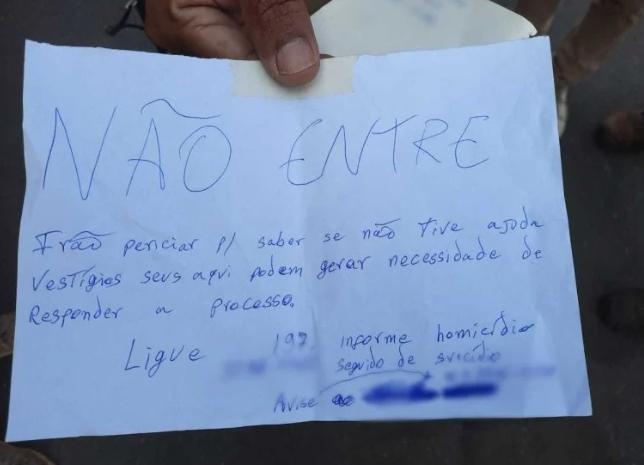 NÃO ENTRE
Irão periciar p/ saber se não tive ajuda
Vestígios seus aqui podem gerar necessidade de
Responder a processo.
Ligue 197 Informe homicídio
seguido de suicídio
Avise